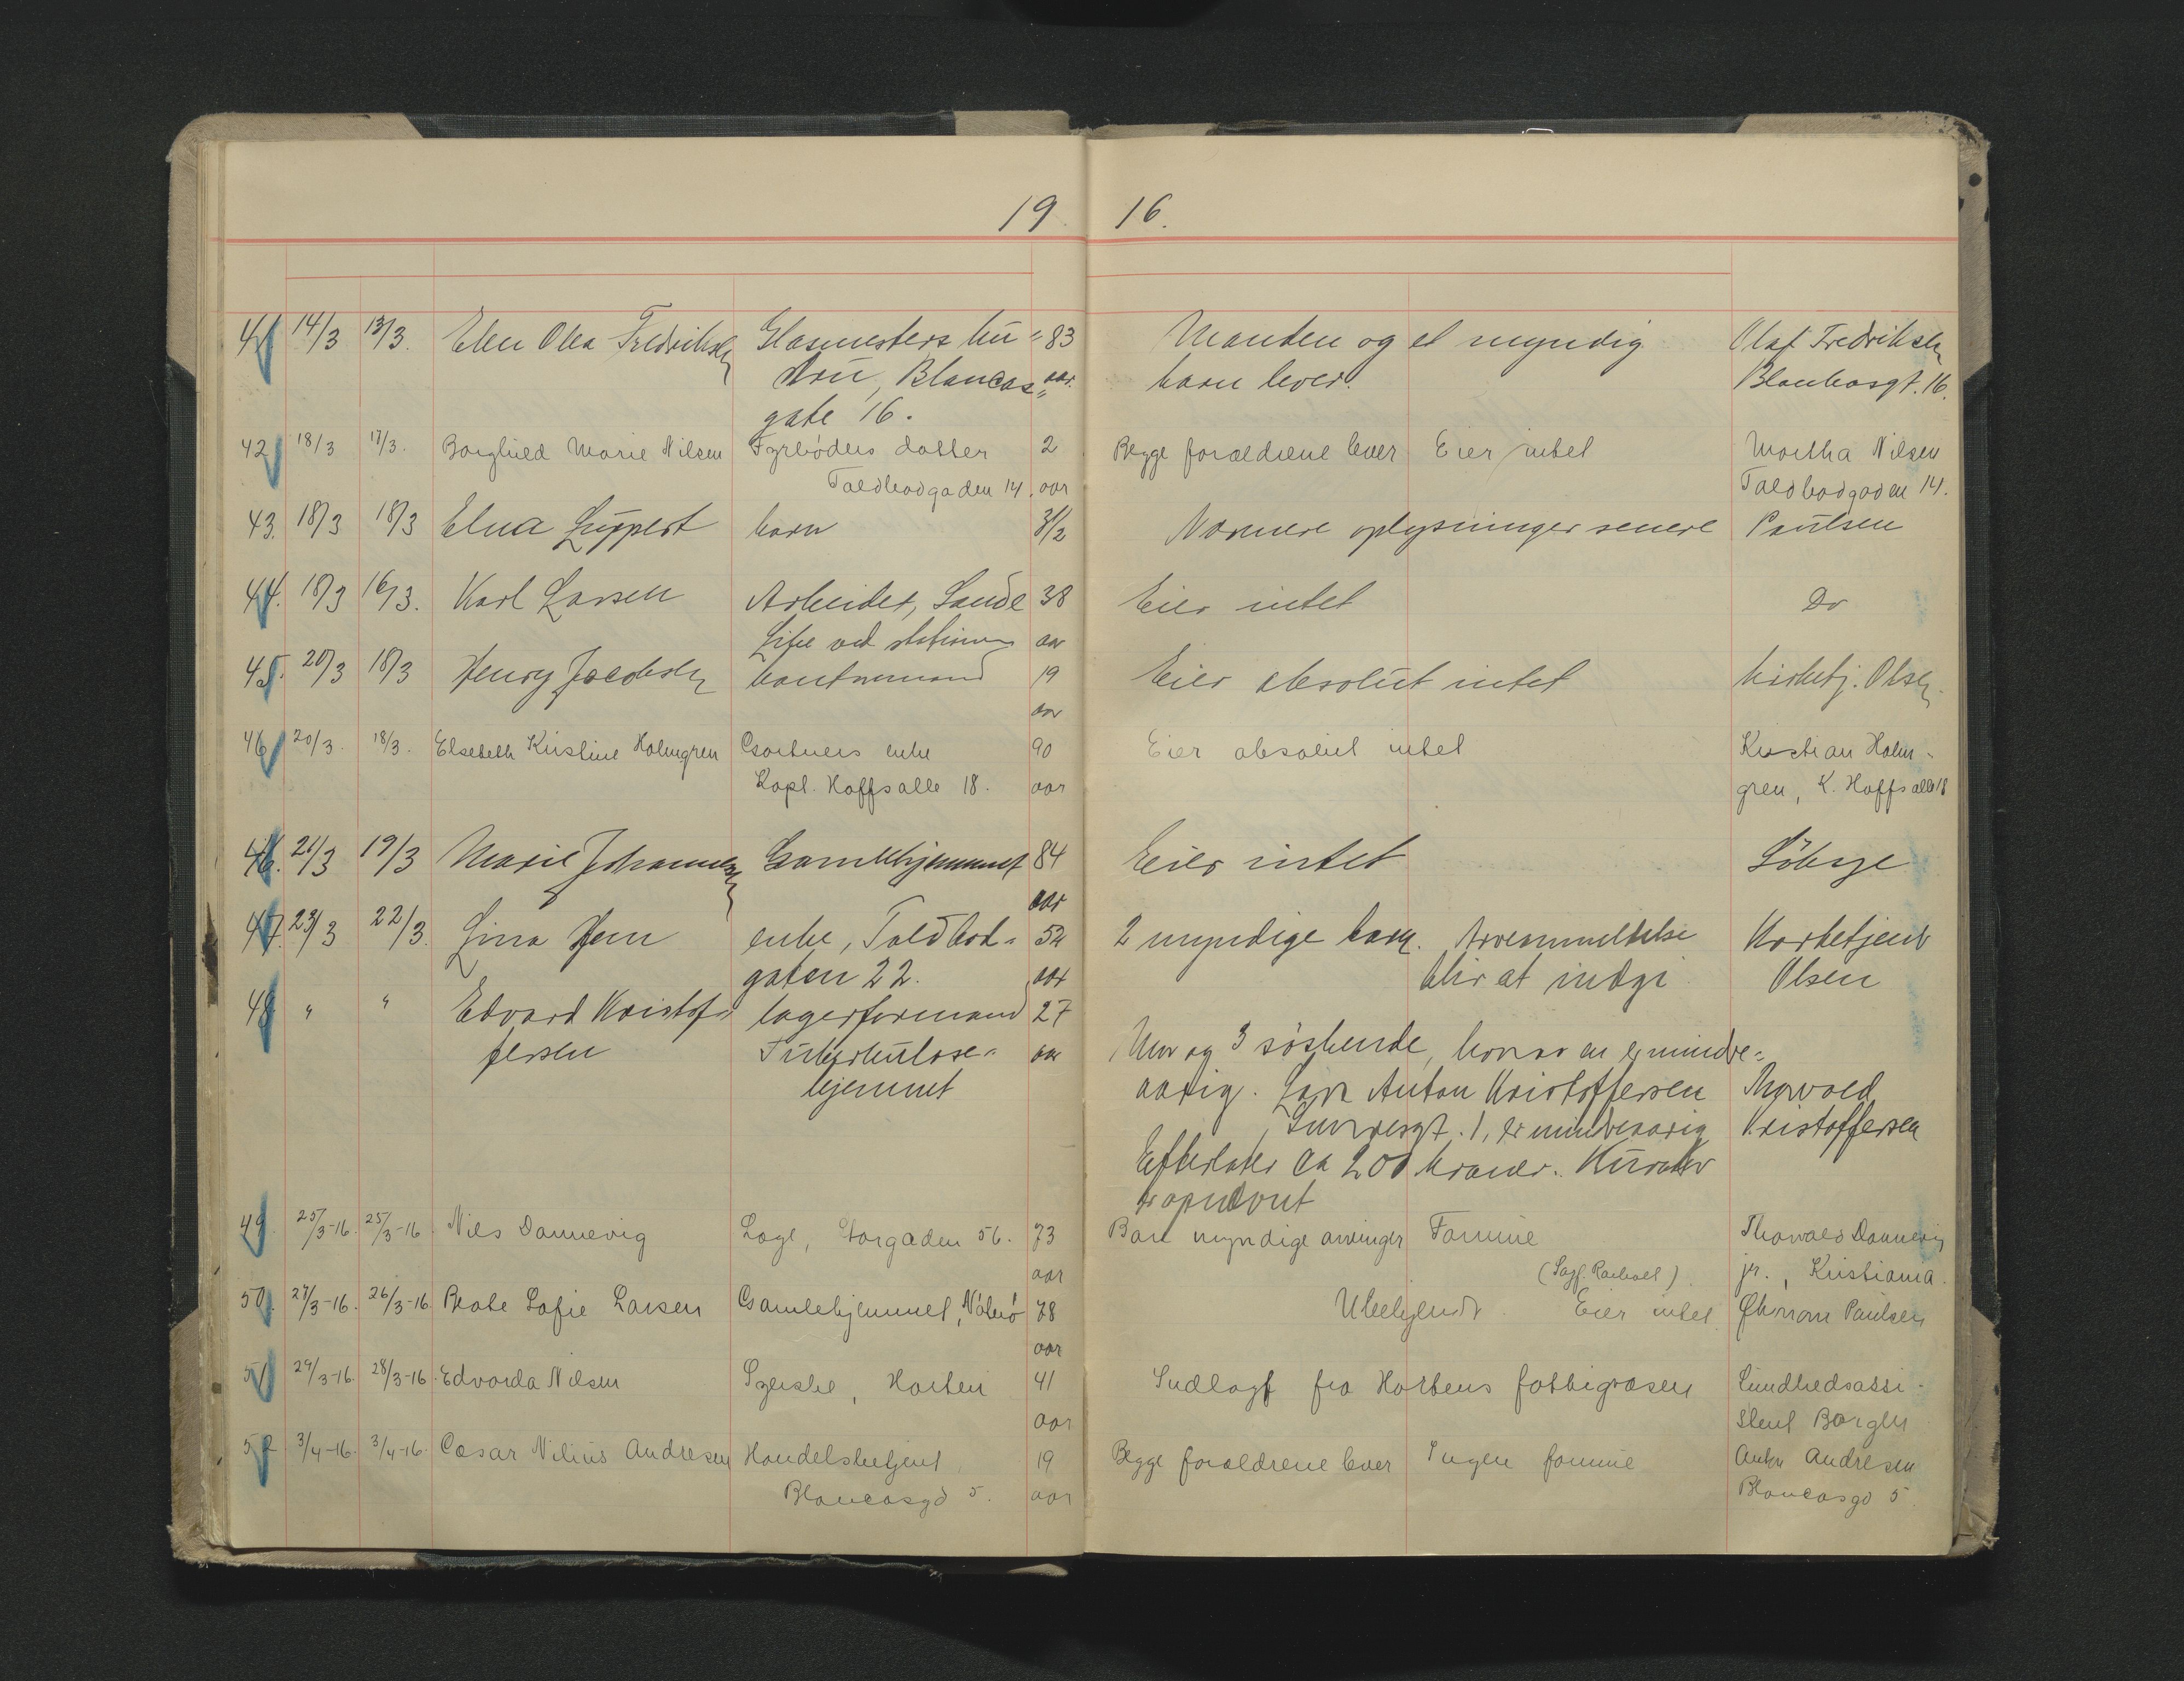 19 16.
41 14/3 13/3. Elen Olea Fredriksen Glasmesters hu= 83 Manden og et myndig Olaf Fredriksen
stru, Blancas= aar. barn lever. Blankasgt. 16.
gate 16.
42 18/3 17/3. Borghild Marie Nilsen Fyrbøders datter 2 Begge forældrene lever Eier intet Martha Nilsen
Toldbodgaden 14. aar Toldbodgaden 14.
43. 18/3 18/3 Elna Luppert barn 3 1/2 Nærmere oplysninger senere Paulsen
44. 18/3 16/3. Karl Larsen Arbeider, Sande 38 Eier intet Do
Like ved stationen aar
45. 20/3 18/3 Henry Jacobsen bantmand 19 Eier absolut intet Kirketj. Olsen
aar
46 20/3. 18/3. Elsebeth Kristine Holmgren Gartners enke 90 Eier absolut intet Kristian Holm-
Kapt. Hoffsalle 18. aar gren, K. Hoffsalle 18
46. 21/3 19/3 Marie Johannesen Gamlehjemmet 84 Eier intet Löbsje
aar
47. 23/3 22/3. Lina Jern enke, Toldbod= 52 2 myndige barn. Arveanmeldelse Kirketjener
gaten 22. aar blir at indgi Olsen
48 " " Edvard Kristof= lagerformand 27
fersen Tuberkulose= aar Mor og 3 söskende, hvorav en er mindre=
hjemmet aarig. Lars Anton Kristoffersen Thorvald
gt. 1, er mindreaarig Kristoffersen
Efterlater ca 200 kroner. Kurator
er opnævnt
49 25/3-16. 25/3-16. Nils Dannevig Logt, Storgaden 56. 73 Bare myndige arvinger Formue Thorvald Dannevig
aar (Sagf. ) jr., Kristiania.
50. 27/3-16. 26/3-16. Beate Sofie Larsen Gamlehjemmet, Nøterø 78 Ubekjendt. Eier intet Paulsen
aar
51 29/3-16. 28/3-16. Edvarda Nilsen Syerske, Horten 41 Indlagt fra Hortens fattigvæsen Sundhedsassi-
aar stent Borgen
52 3/4-16. 3/4-16. Cæsar Nilius Andresen Handelsbetjent 19 Begge forældrene lever Ingen formue Anton Andresen
Blancasgd 5. aar Blancasgd 5.